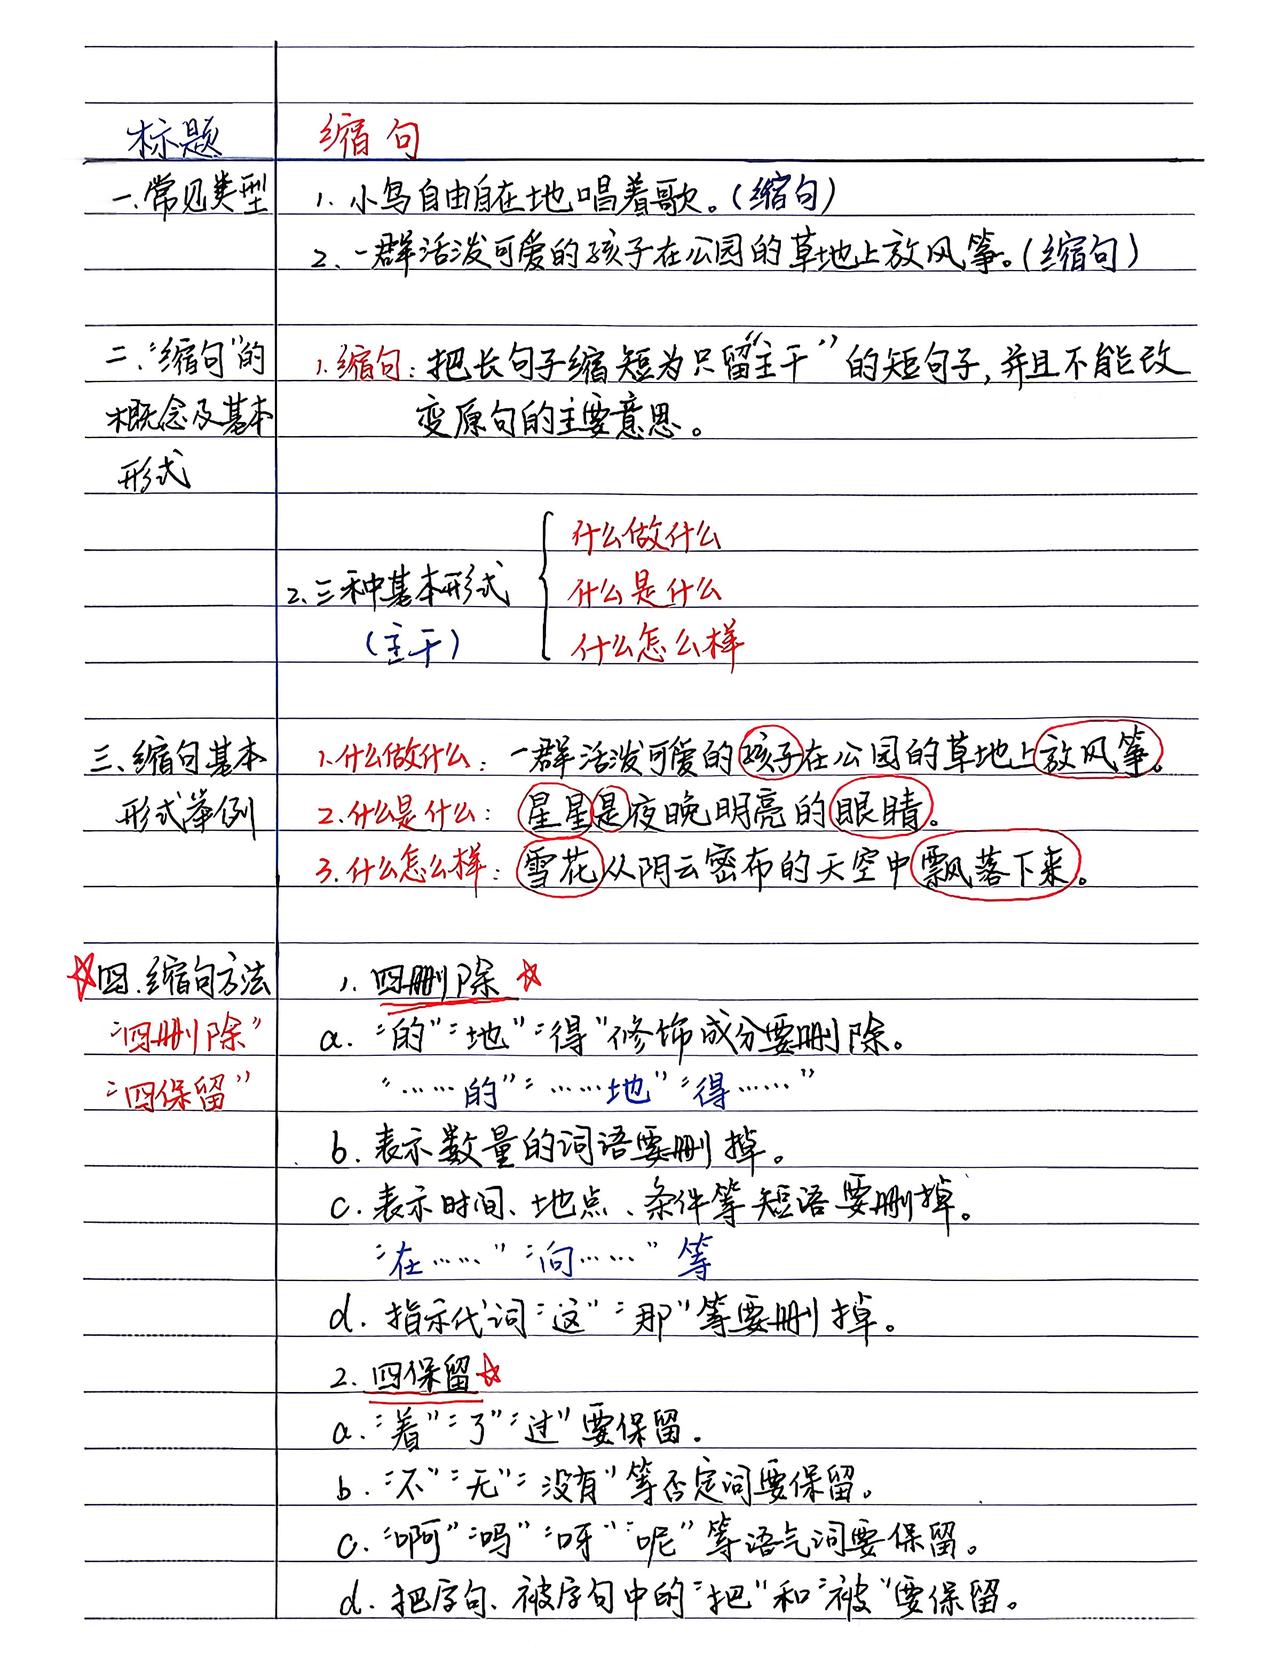 标题 缩句
一.常见类型 1. 小鸟自由自在地唱着歌。(缩句)
2. 一群活泼可爱的孩子在公园的草地上放风筝。(缩句)
二.“缩句”的 1.缩句:把长句子缩短为只留“主干”的短句子,并且不能改
概念及基本 变原句的主要意思。
形式
什么做什么
2.三种基本形式 什么是什么
(主干) 什么怎么样
三、缩句基本 1.什么做什么:一群活泼可爱的孩子在公园的草地上放风筝。
形式举例 2.什么是什么:星星是夜晚明亮的眼睛。
3.什么怎么样:雪花从阴云密布的天空中飘落下来。
☆四.缩句方法 1. 四删除 ☆
“四删除” a. “的”“地”“得”修饰成分要删除。
“四保留” “……的”“……地”“得……”
b. 表示数量的词语要删掉。
c. 表示时间、地点、条件等短语要删掉。
“在……”“向……”等
d. 指示代词“这”“那”等要删掉。
2. 四保留☆
a. “着”“了”“过”要保留.
b. “不”“无”“没有”等否定词要保留。
c. “啊”“吗”“呀”“呢”等语气词要保留。
d. 把字句、被字句中的“把”和“被”要保留。